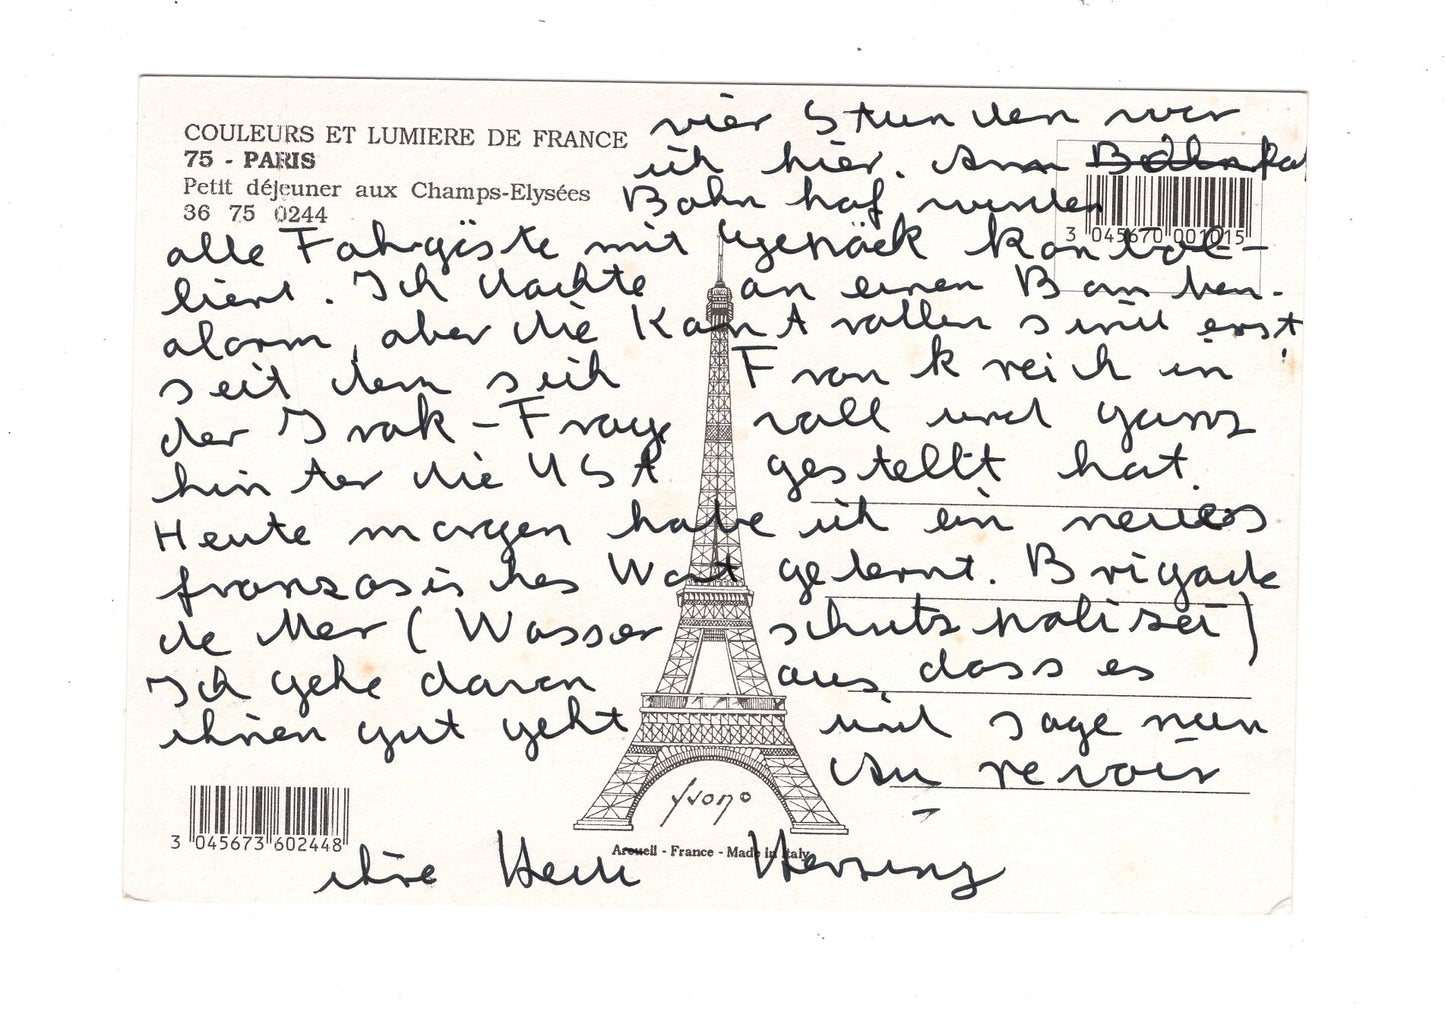 COULEURS ET LUMIERE DE FRANCE
75 - PARIS
Petit déjeuner aux Champs-Elysées
36 75 0244
vier Stunden war
ich hier. Am
Bahnhof werden
3 045670 001015
alle Fahrgäste mit Gepäck kontrol-
liert. Ich dachte an einen Bomben-
alarm, aber die Kontrollen sind erst
seit dem sich Frankreich in
der Irak-Frage voll und ganz
hinter die USA gestellt hat.
Heute morgen habe ich ein neues
französisches Wort gelernt. Brigade
de Mer (Wasserschutzpolizei)
Ich gehe davon aus, dass es
ihnen gut geht und sage nun
Au revoir
yvon
3 045673 602448
Arcueil - France - Made in Italy
ihre